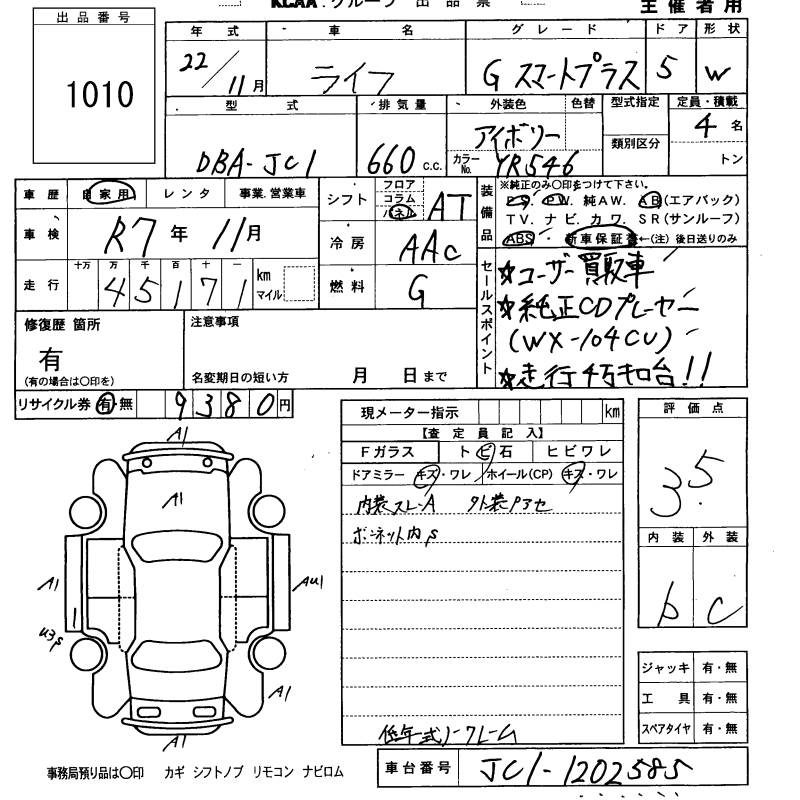 KCAA.グループ 出品票
主催者用
出品番号
1010
年式 車名 グレード ドア 形状
22/11月 ライフ G スマートプラス 5 W
型式 排気量 外装色 色替 型式指定 定員・積載
DBA-JC1 660 c.c. アイボリー 4 名
カラーNo. YR546 類別区分 トン
車歴 自家用 レンタ 事業.営業車
車検 R7年 11月
走行 十万 万 千 百 十 一
45171 km マイル
シフト フロア コラム パネル AT
冷房 AAC
燃料 G
装備品
※純正のみ〇印をつけて下さい。
P.S. P.W. 純AW. AB(エアバック)
TV. ナビ. カワ. SR(サンルーフ)
ABS. 新車保証書←(注) 後日送りのみ
セールスポイント
☆ユーザー買取車
☆純正CDプレーヤー
(WX-104CU)
☆走行4万キロ台!!
修復歴 箇所
有
(有の場合は〇印を)
注意事項
名変期日の短い方 月 日まで
リサイクル券 有・無 9380円
現メーター指示 km
【査定員記入】
Fガラス トビ石 ヒビワレ
ドアミラー キズ・ワレ ホイール(CP) キズ・ワレ
内装スレ-A
ボンネット内S
低年式ノークレーム
評価点
3.5
内装 外装
b C
ジャッキ 有・無
工具 有・無
スペアタイヤ 有・無
A1
A1
A1
AU1
U3S
A1
A1
事務局預り品は〇印 カギ シフトノブ リモコン ナビロム
車台番号 JC1-1202585